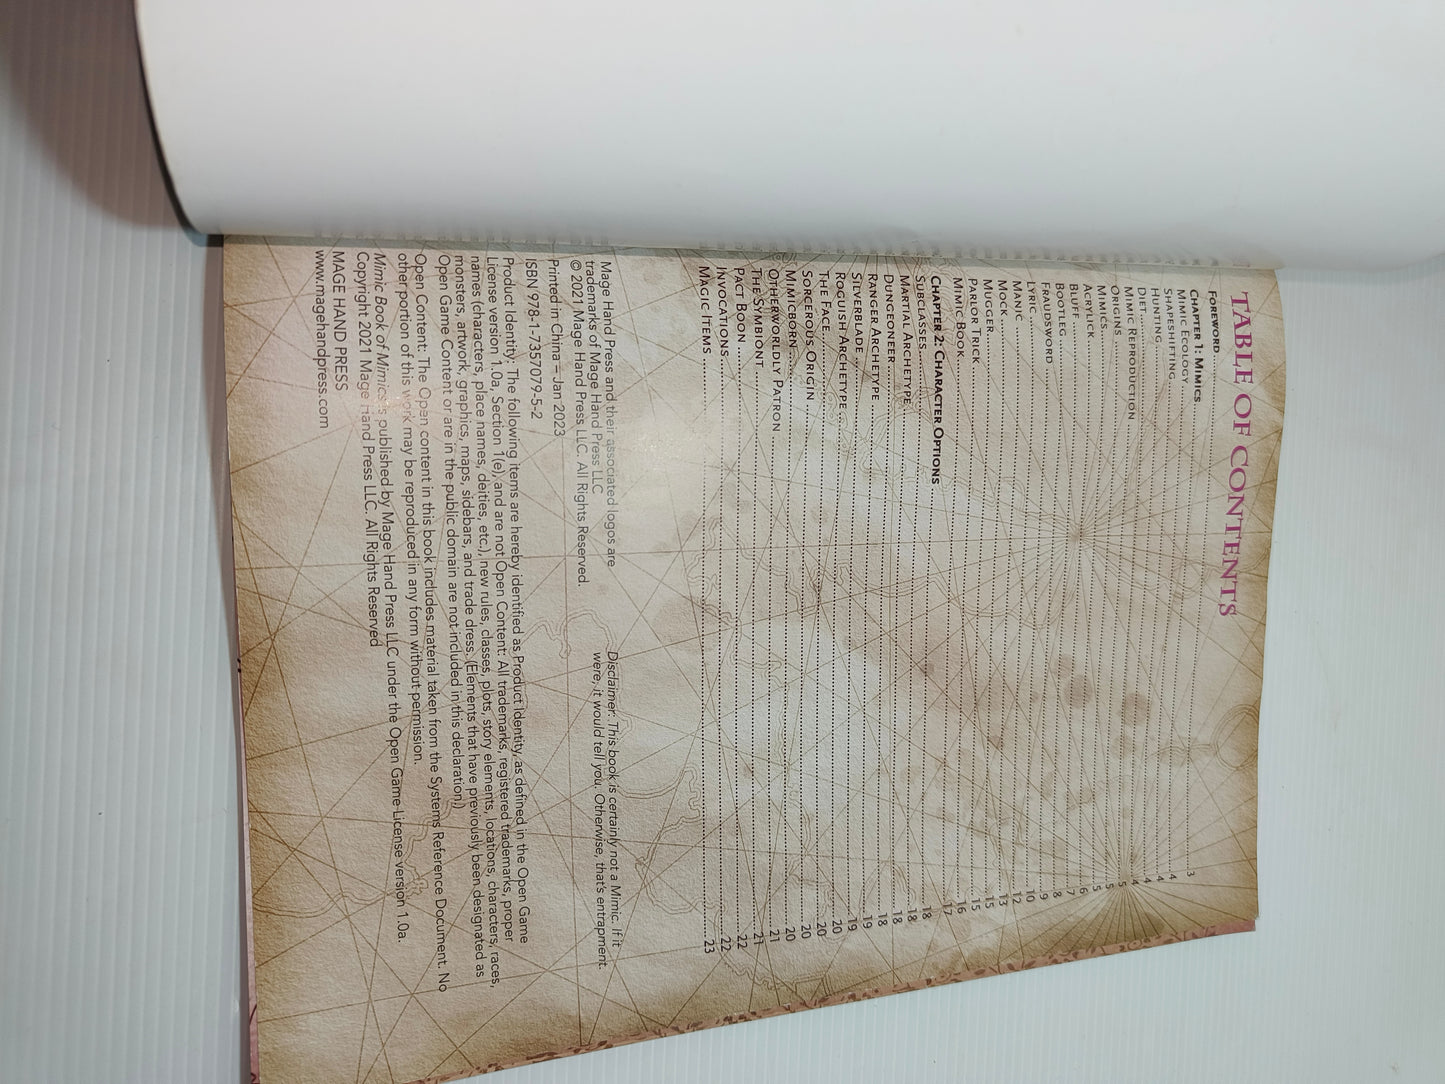 TABLE OF CONTENTS
FOREWORD 3
CHAPTER 1: MIMICS 4
MIMIC ECOLOGY 4
SHAPESHIFTING 4
HUNTING 4
DIET 5
MIMIC REPRODUCTION 5
ORIGINS 5
MIMICS 6
ACRYLICK 7
BLUFF 8
BOOTLEG 9
FRAUDSWORD 10
LYRIC 12
MANIC 13
MOCK 15
MUGGER 15
PARLOR TRICK 16
MIMIC BOOK 17
CHAPTER 2: CHARACTER OPTIONS 18
SUBCLASSES 18
MARTIAL ARCHETYPE 18
DUNGEONEER 18
RANGER ARCHETYPE 19
SILVERBLADE 19
ROGUISH ARCHETYPE 20
THE FACE 20
SORCEROUS ORIGIN 20
MIMICBORN 20
OTHERWORLDLY PATRON 21
THE SYMBIONT 21
PACT BOON 22
INVOCATIONS 22
MAGIC ITEMS 23
Mage Hand Press and their associated logos are
trademarks of Mage Hand Press LLC
© 2021 Mage Hand Press LLC. All Rights Reserved.
Disclaimer: This book is certainly not a Mimic. If it
were, it would tell you. Otherwise, that's entrapment.
Printed in China – Jan 2023
ISBN 978-1-7357079-5-2
Product Identity: The following items are hereby identified as Product Identity, as defined in the Open Game
License version 1.0a, Section 1(e), and are not Open Content: All trademarks, registered trademarks, proper
names (characters, place names, deities, etc.), new rules, classes, plots, story elements, locations, characters, races,
monsters, artwork, graphics, maps, sidebars, and trade dress. (Elements that have previously been designated as
Open Game Content or are in the public domain are not included in this declaration.)
Open Content: The Open content in this book includes material taken from the Systems Reference Document. No
other portion of this work may be reproduced in any form without permission.
Mimic Book of Mimics is published by Mage Hand Press LLC under the Open Game License version 1.0a.
Copyright 2021 Mage Hand Press LLC. All Rights Reserved
MAGE HAND PRESS
www.magehandpress.com